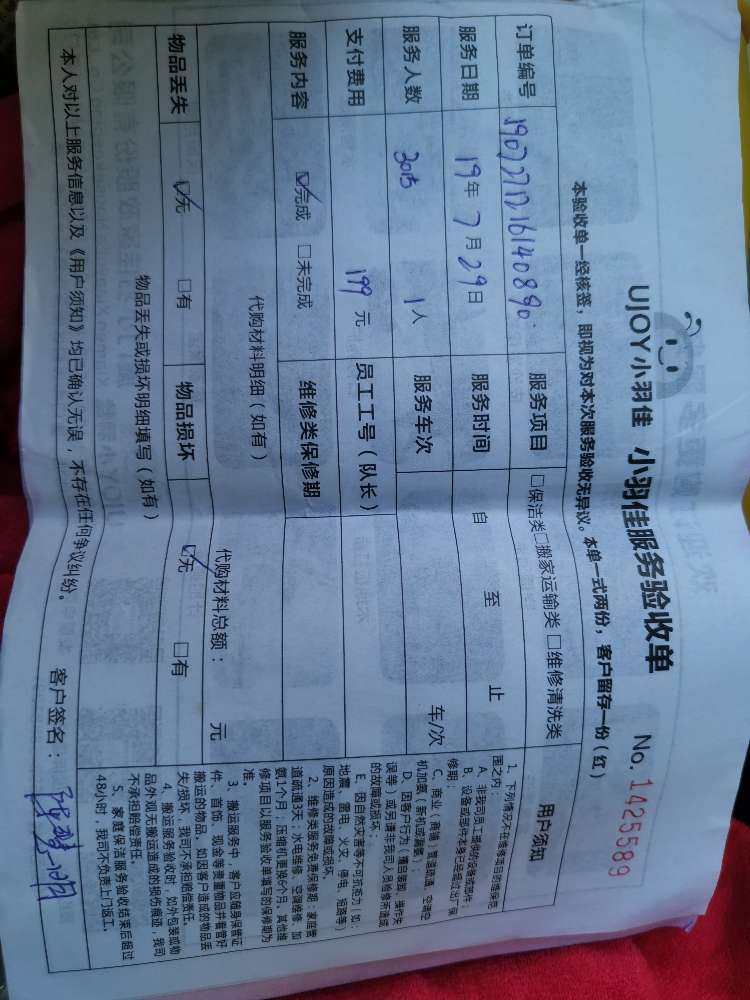 UJOY小羽佳 小羽佳服务验收单
No. 1425589
本验收单一经核签，即视为对本次服务验收无异议。本单一式两份，客户留存一份（红）
订单编号 服务项目 □保洁类□搬家运输类 □维修清洗类
服务日期 19年7月29日 服务时间 自 至 止
服务人数 1人 服务车次 车/次
支付费用 199 元 员工工号（队长）
服务内容 ☑完成 □未完成 维修类保修期
代购材料明细（如有） 代购材料总额： 元
物品丢失 ☑无 □有 物品损坏 ☑无 □有
物品丢失或损坏明细填写（如有）
本人对以上服务信息以及《用户须知》均已确认无误，不存在任何争议纠纷。 客户签名：
用户须知
1、下列情况不在维修项目的维保范
围之内：
A、非我司员工提供的设备或部件；
B、设备或部件本身已经超过出厂保
修期；
C、商业（商铺）管道疏通、空调空
机加氨（新机或漏氨）；
D、因客户行为（擅自拆卸、操作失
误等）或另请非我司人员检修而造成
的故障或损坏；
E、因自然灾害等不可抗拒力（如：
地震、雷电、火灾、停电、短路等）
原因造成的故障或损坏。
2、维修类服务免费保修期：家庭管
道疏通3天，水电维修、空调维修、加
氨1个月；压缩机更换6个月，其他维
修项目以服务验收单填写的保修期为
准。
3、搬运服务中，客户应随身保管证
件、首饰、现金等贵重物品并看管好
搬运的物品，如因客户造成的物品丢
失/损坏，我司不承担赔偿责任。
4、搬运服务验收时，如外包装或物
品外观无搬运造成的损伤痕迹，我司
不承担赔偿责任。
5、家庭保洁服务验收结束后超过
48小时，我司不负责上门返工。